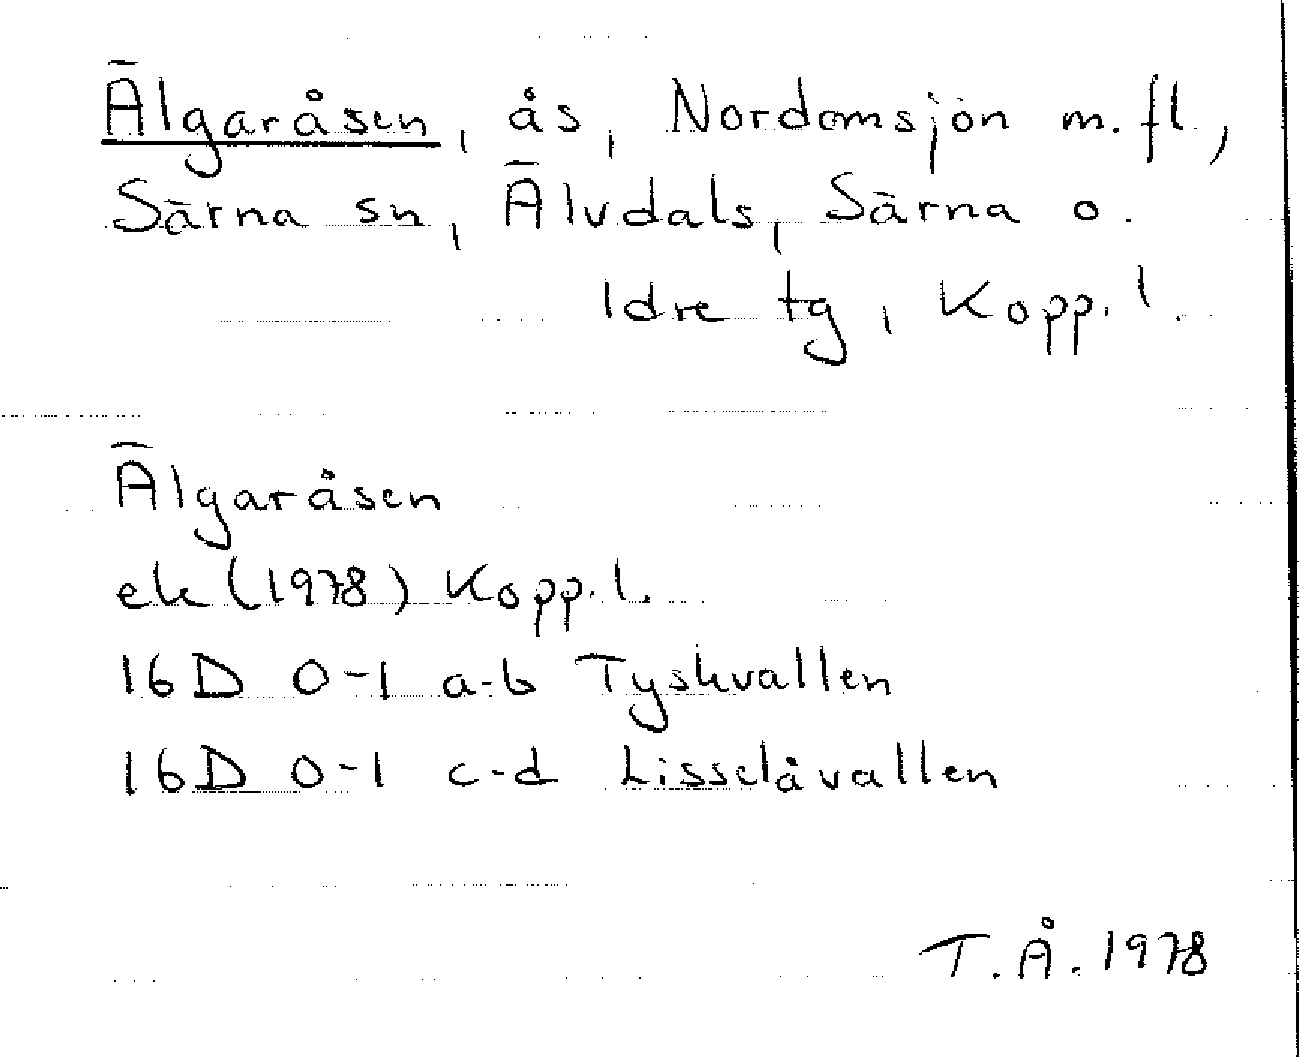 Älgaråsen, ås, Nordomsjön m. fl.,
Särna sn, Älvdals, Särna o.
Idre tg, Kopp. l.
Älgaråsen
ek (1978) Kopp. l.
16D 0-1 a-b Tyskvallen
16D 0-1 c-d Lisselåvallen
T. Å. 1978